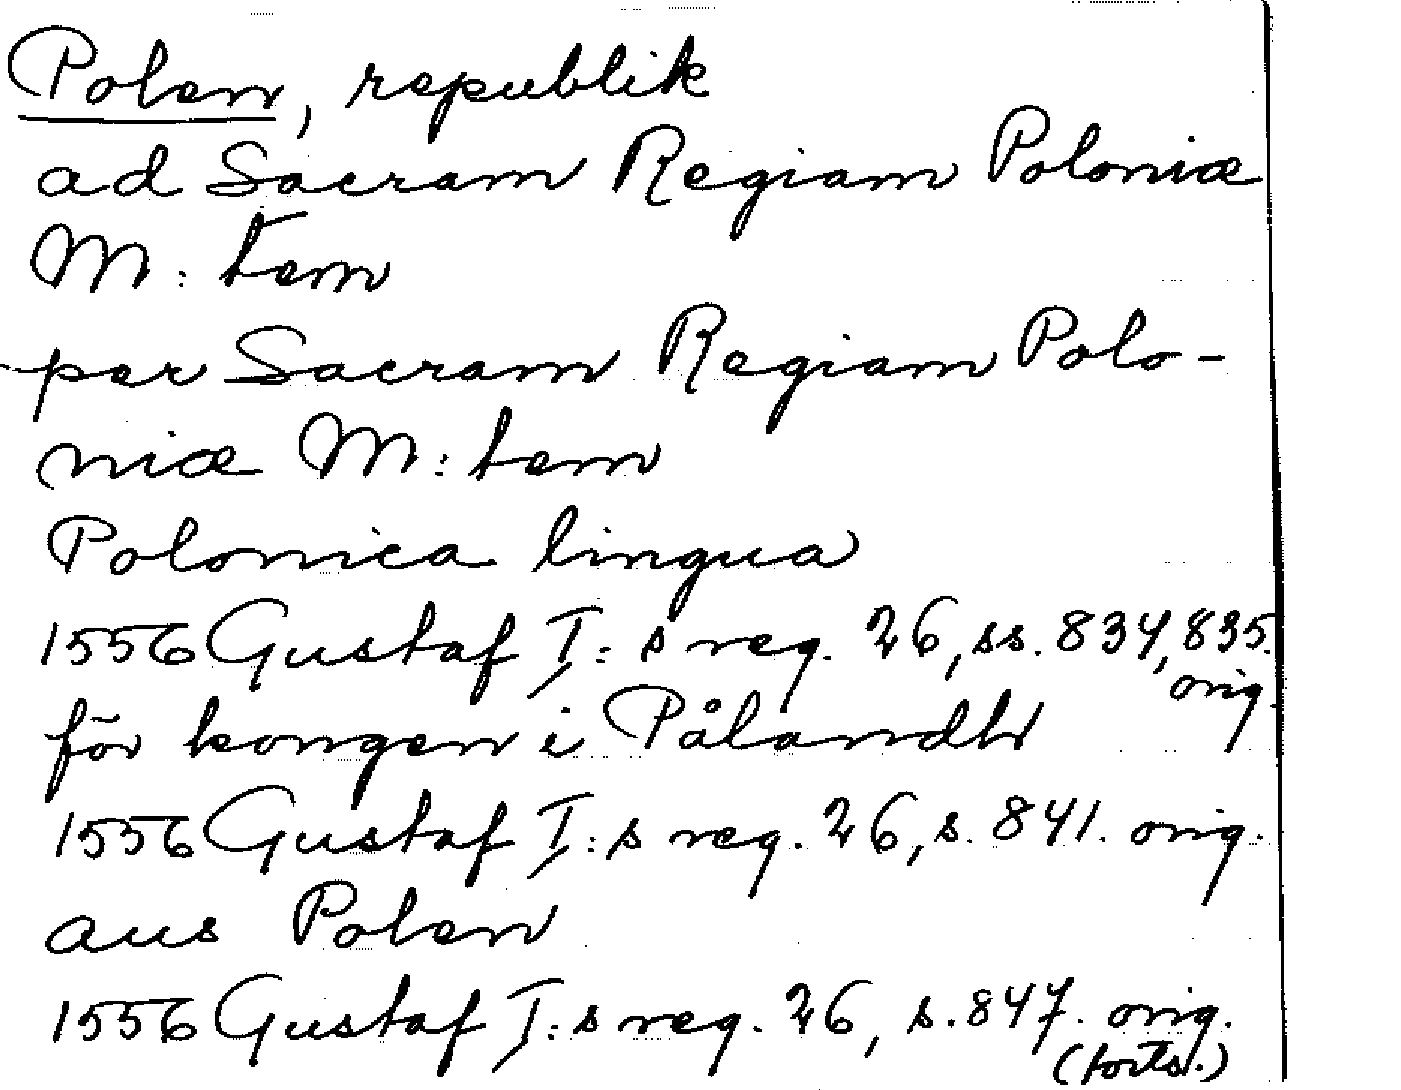 Polen, republik
ad Sacram Regiam Poloniæ
M:tem
per Sacram Regiam Polo-
niæ M:tem
Polonica lingua
1556 Gustaf I:s reg. 26, ss. 834, 835.
orig.
för kongen i Pålandh
1556 Gustaf I:s reg. 26, s. 841. orig.
aus Polen
1556 Gustaf I:s reg. 26, s. 847. orig.
(forts.)